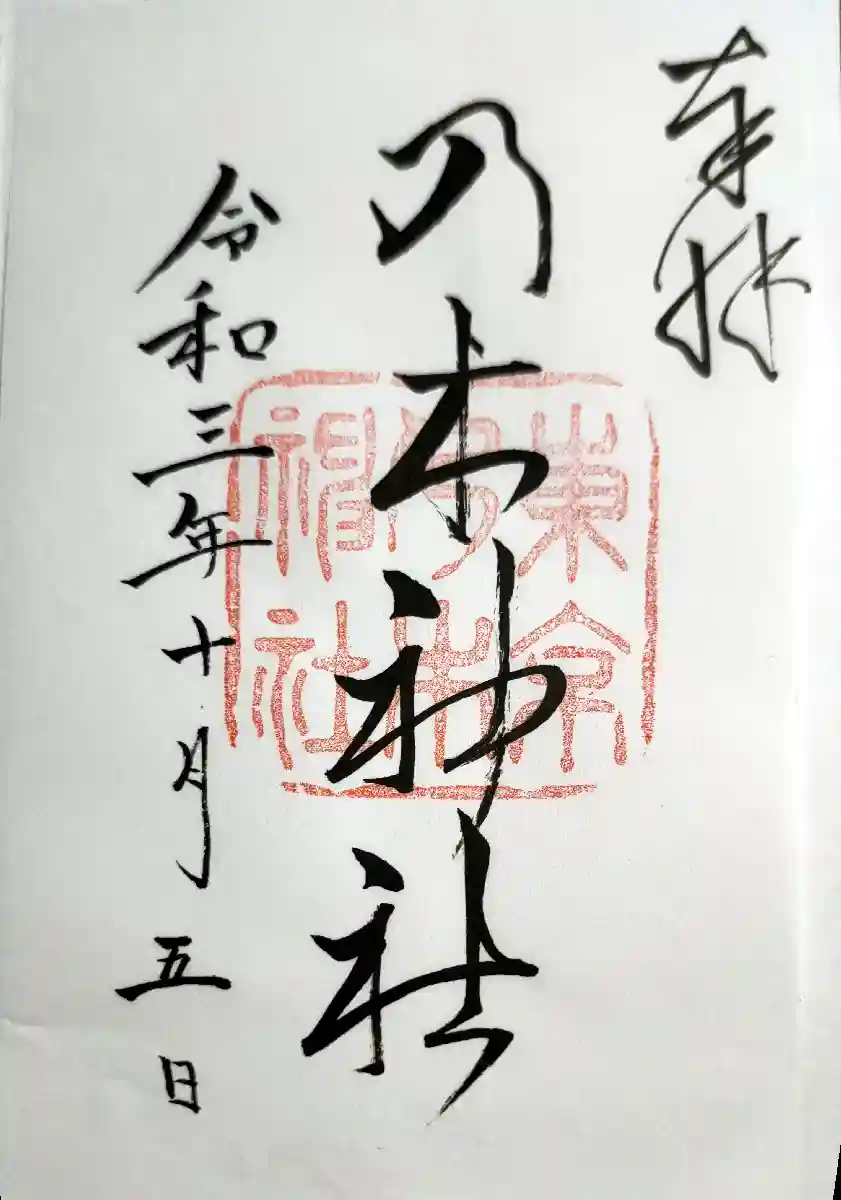 奉拝
乃木神社
令和三年十月五日
東京
乃木
神社